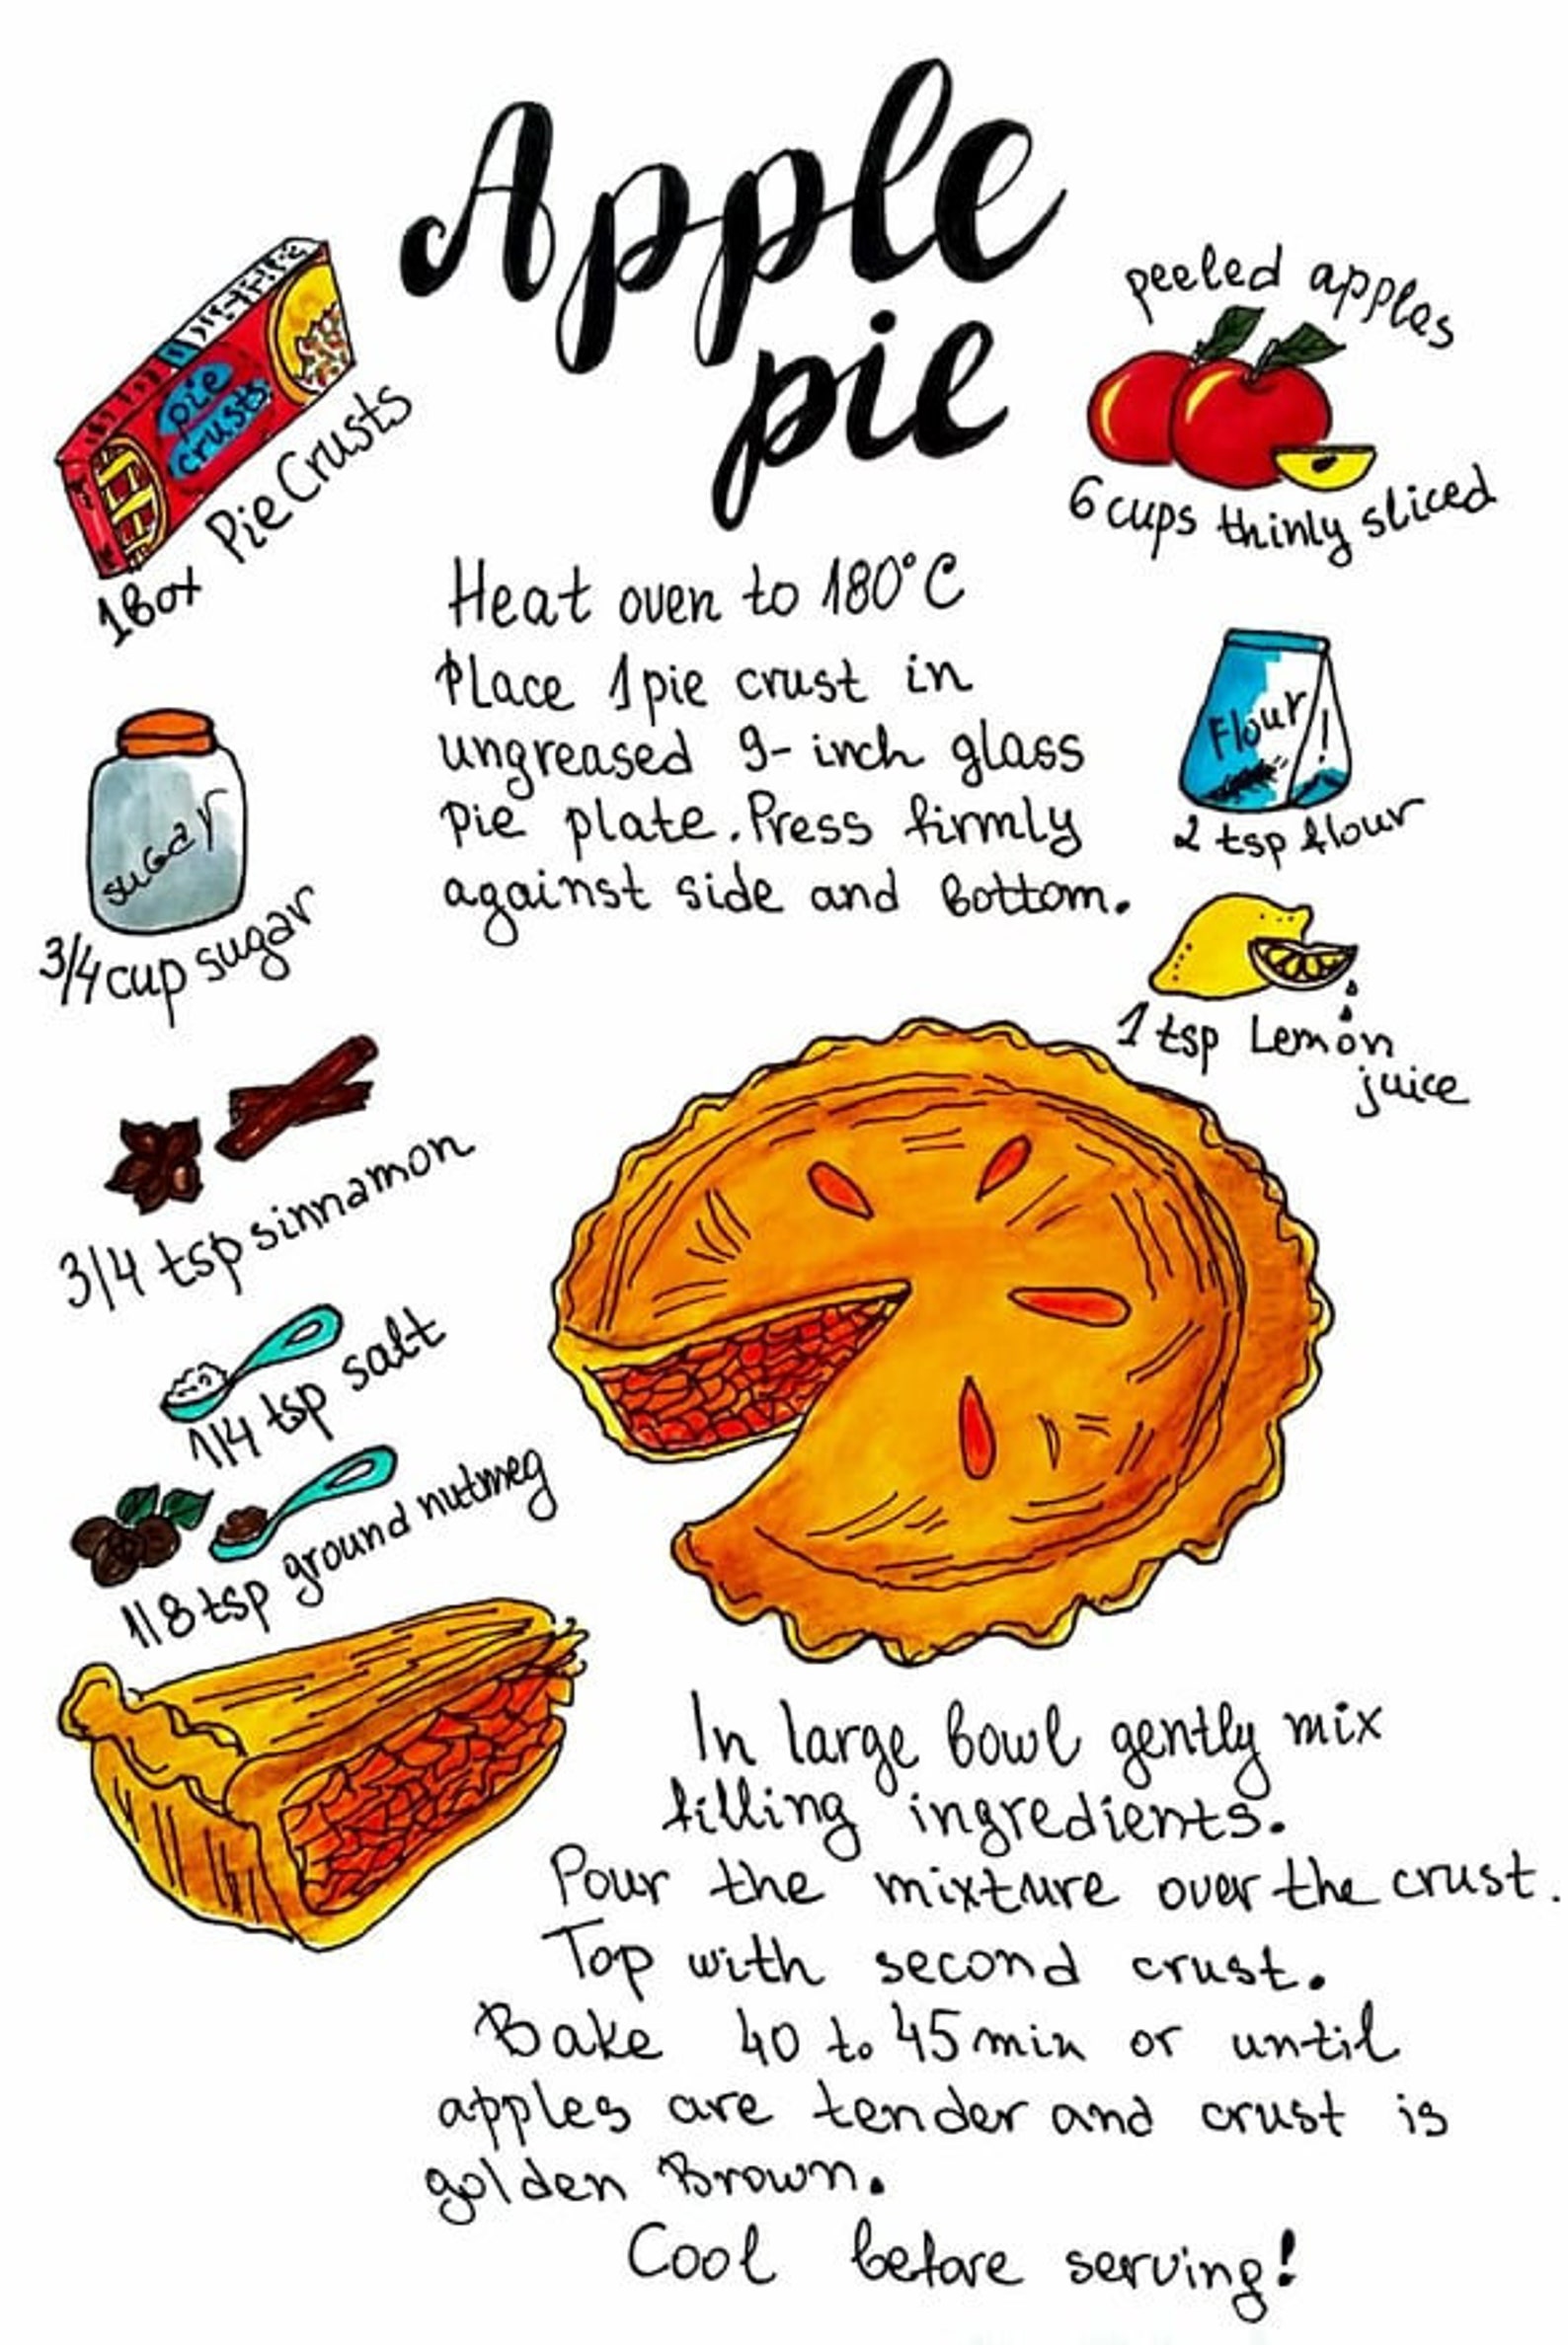 Apple
pie
pie
crusts
1 Box Pie Crusts
peeled apples
6 cups thinly sliced
Heat oven to 180°C
Place 1 pie crust in
ungreased 9-inch glass
pie plate. Press firmly
against side and bottom.
Flour
2 tsp flour
sugar
3/4 cup sugar
1 tsp Lemon
juice
3/4 tsp sinnamon
1/4 tsp salt
1/8 tsp ground nutmeg
In large bowl gently mix
filling ingredients.
Pour the mixture over the crust.
Top with second crust.
Bake 40 to 45 min or until
apples are tender and crust is
golden Brown.
Cool before serving!